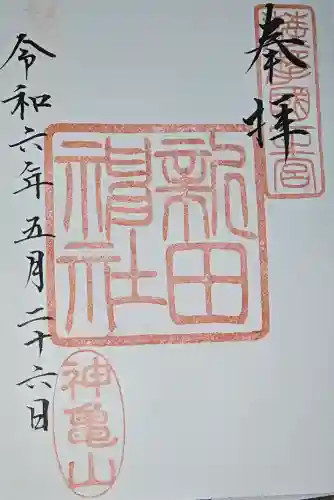 奉拝
薩摩國一宮
新田神社
令和六年五月二十六日
神亀山